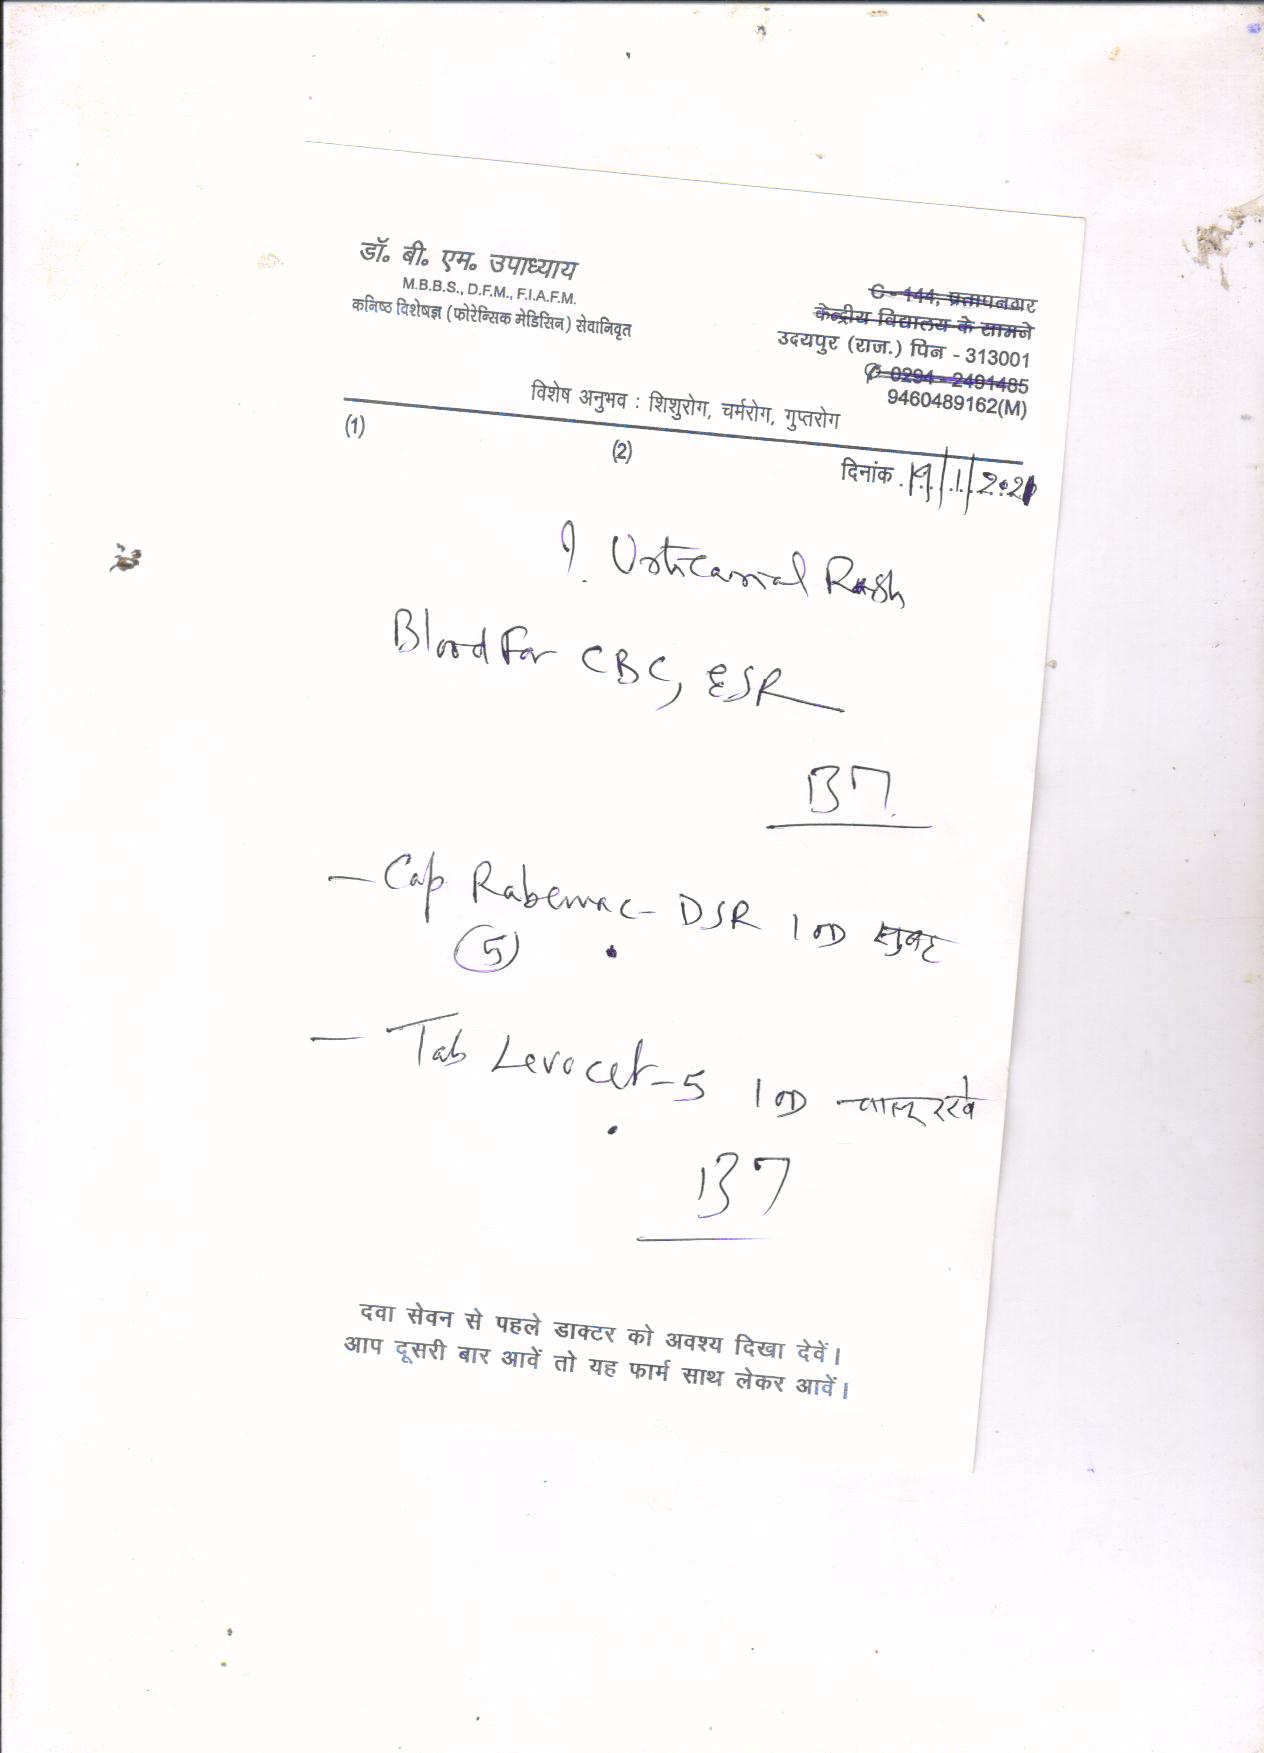 डॉ. बी. एम. उपाध्याय
M.B.B.S., D.F.M., F.I.A.F.M.
कनिष्ठ विशेषज्ञ (फोरेन्सिक मेडिसिन) सेवानिवृत
C - 144, प्रतापनगर
केन्द्रीय विद्यालय के सामने
उदयपुर (राज.) पिन - 313001
0294 - 2491485
9460489162(M)
विशेष अनुभव : शिशुरोग, चर्मरोग, गुप्तरोग
(1) (2) दिनांक 19/1/2021
?. Urticarial Rash
Blood For CBC, ESR
– Cap Rabemac - DSR 1 OD सुबह
(5)
– Tab Levocet - 5 1 OD चालू रखे
दवा सेवन से पहले डाक्टर को अवश्य दिखा देवें।
आप दूसरी बार आवें तो यह फार्म साथ लेकर आवें।